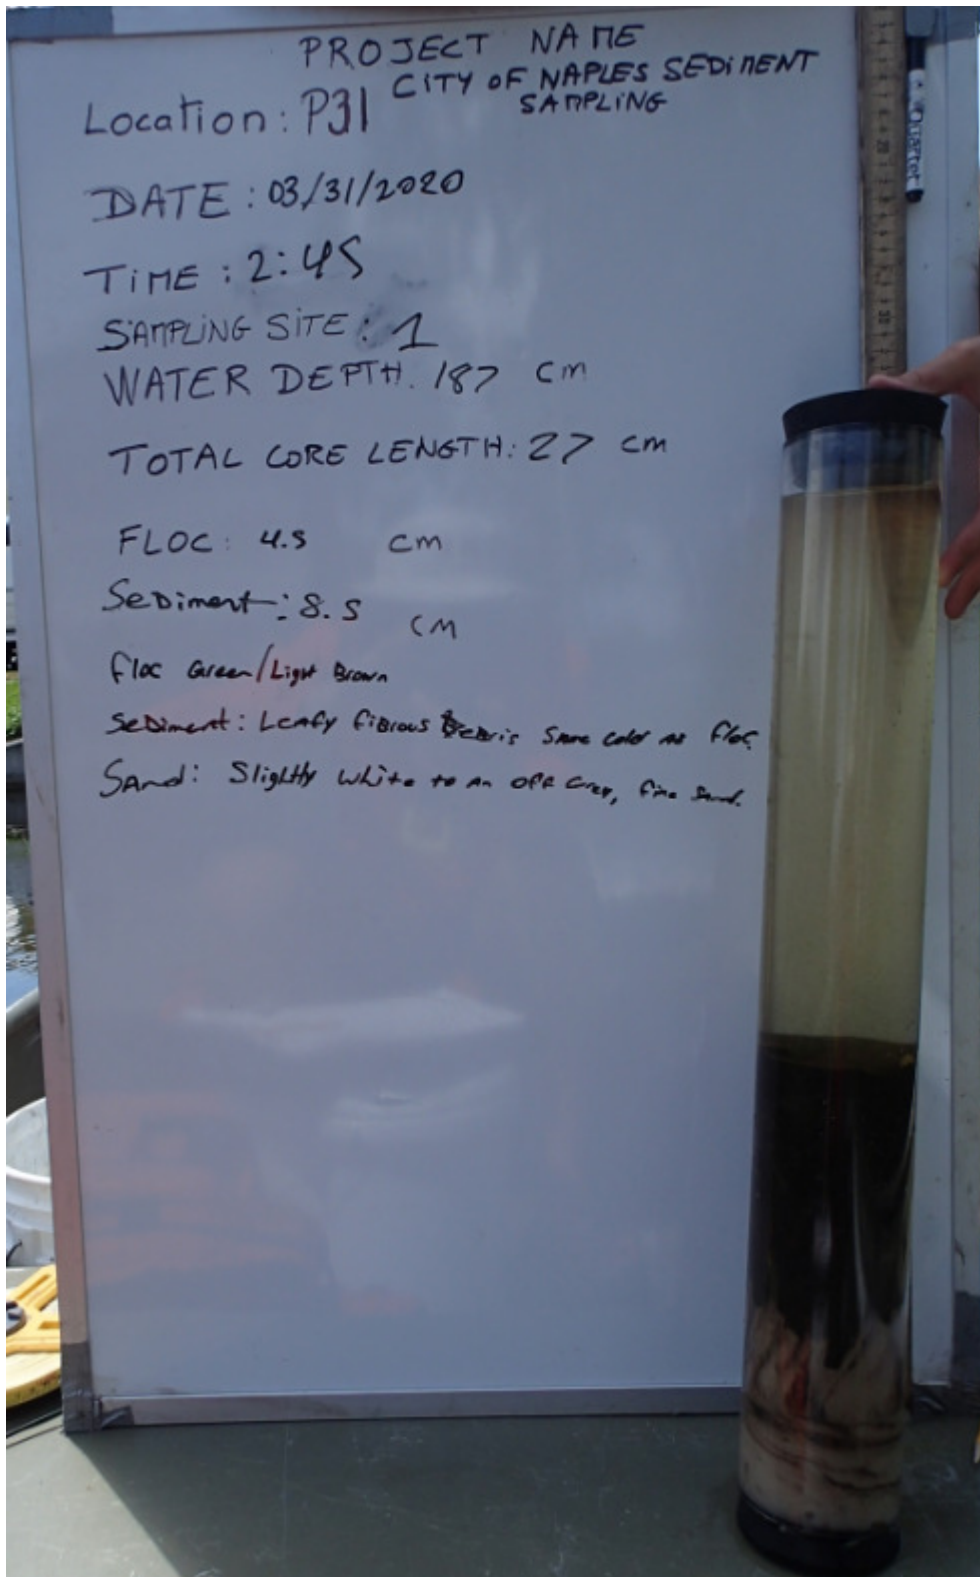 PROJECT NAME
CITY OF NAPLES SEDIMENT
SAMPLING
Location: P31
DATE: 03/31/2020
TIME: 2:45
SAMPLING SITE: 1
WATER DEPTH. 187 cm
TOTAL CORE LENGTH: 27 cm
FLOC: 4.5 cm
Sediment: 8.5 cm
floc Green/Light Brown
Sediment: Leafy fibrous Debris Same color as floc
Sand: Slightly white to an off Grey, fine Sand.
Quartet